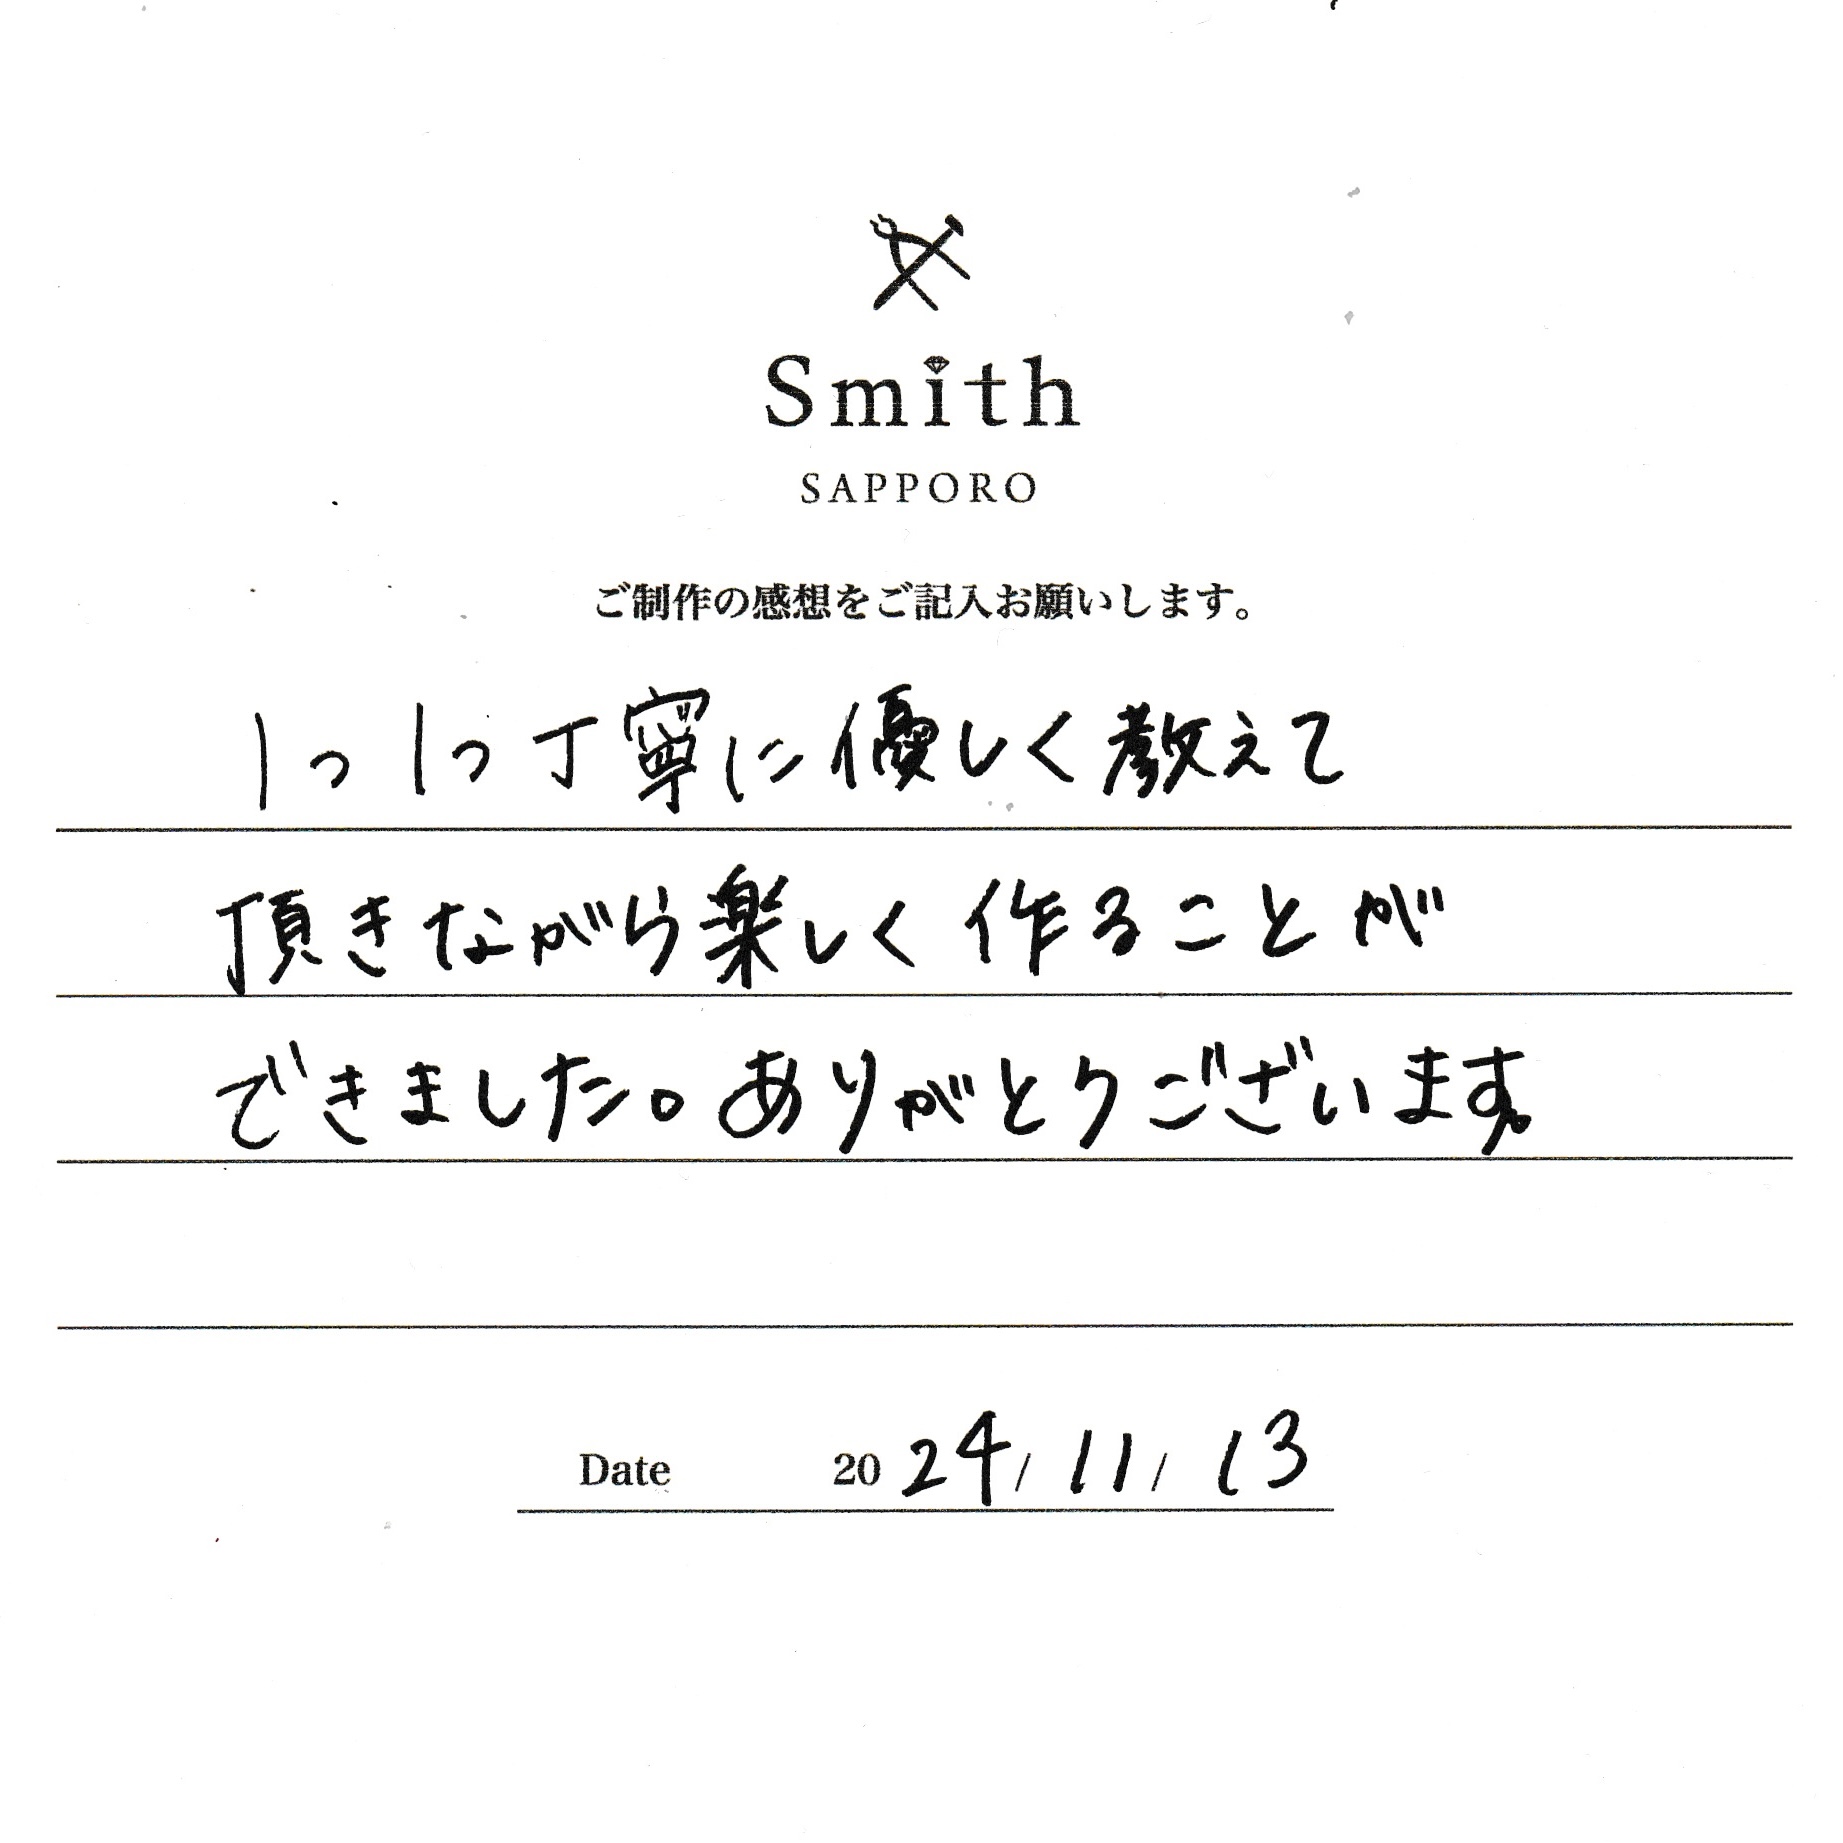 Smith
SAPPORO
ご制作の感想をご記入お願いします。
1つ1つ丁寧に優しく教えて
頂きながら楽しく作ることが
できました。ありがとうございます。
Date 2024/11/13